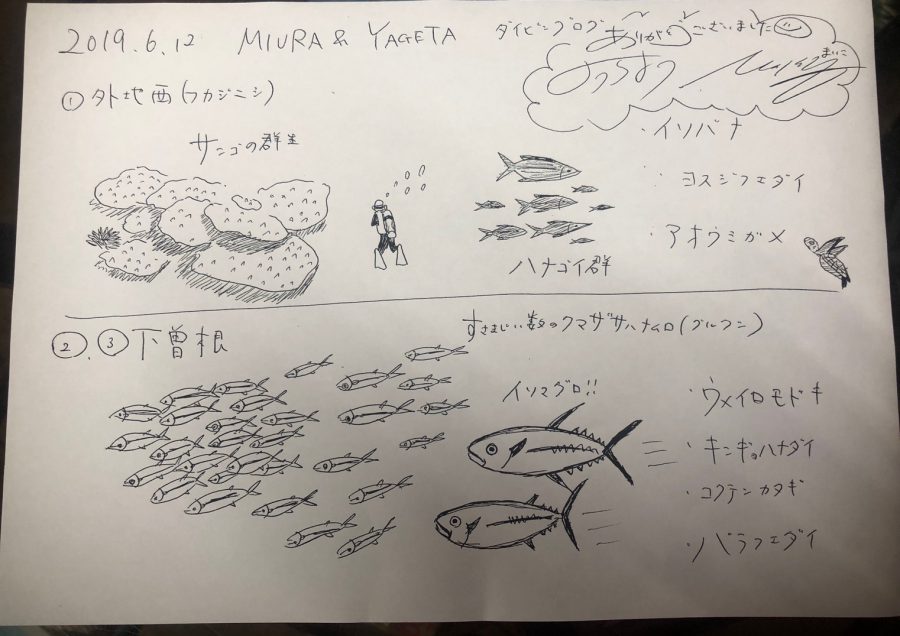 2019.6.12 MIURA & YAGETA ダイビングログ ありがとうございました
まいこ
① 外地西(フカジニシ)
サンゴの群生
・イソバナ
・ヨスジフエダイ
・アオウミガメ
ハナゴイ群
②.③下曽根
すさまじい数のクマザサハナムロ(グルクン)
イソマグロ!!
・ウメイロモドキ
・キンギョハナダイ
・コクテンカタギ
・バラフエダイ